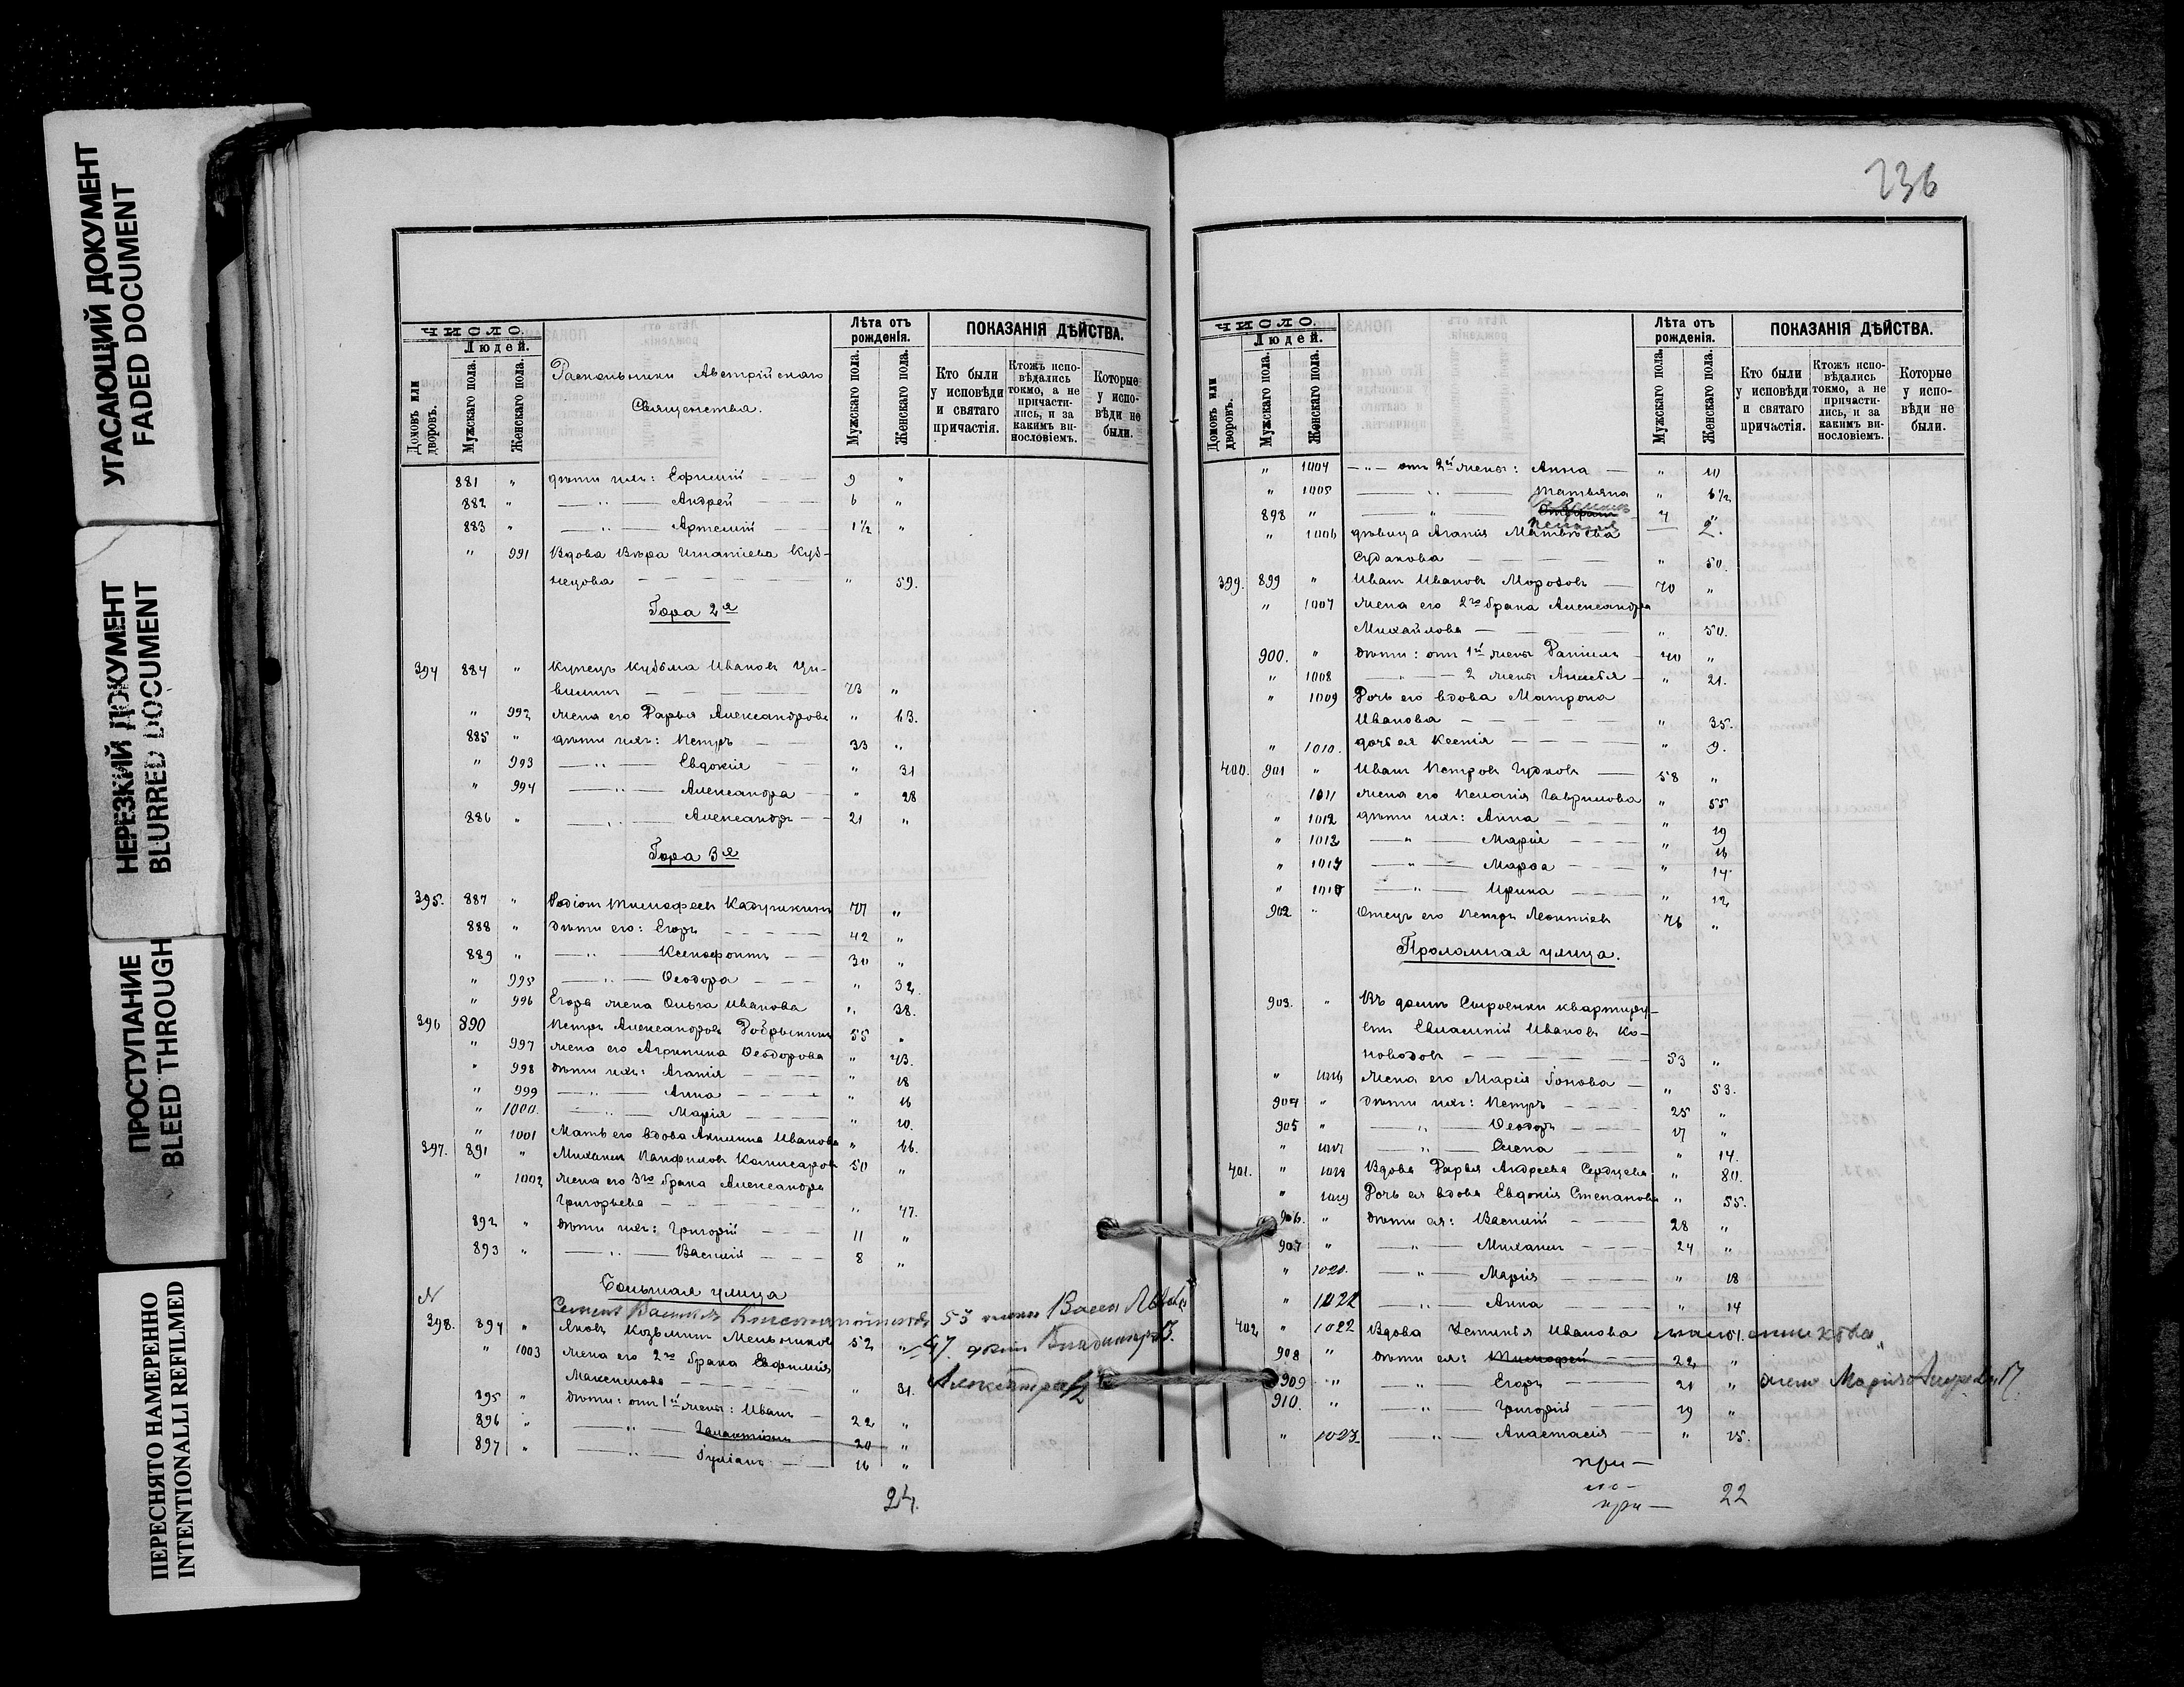 УГАСАЮЩИЙ ДОКУМЕНТ
FADED DOCUMENT
НЕРЕЗКИЙ ДОКУМЕНТ
BLURRED DOCUMENT
ПРОСТУПАНИЕ
BLEED THROUGH
ПЕРЕСНЯТО НАМЕРЕННО
INTENTIONALLI REFILMED
ЧИСЛО.
Людей.
Домовъ или дворовъ.
Мужскаго пола.
Женскаго пола.
Раскольники Австрійскаго
Священства.
Лѣта отъ рожденія.
Мужскаго пола.
Женскаго пола.
ПОКАЗАНІЯ ДѢЙСТВА.
Кто были у исповѣди и святаго причастія.
Ктожъ испо-вѣдались токмо, а не причасти-лись, и за какимъ ви-нословіемъ.
Которые у испо-вѣди не были.
881 " дѣти ихъ: Ефимій 9 "
882 " — " — Андрей 6 "
883 " — " — Артемій 1½ "
" 991 Вдова Вѣра Игнатіева Куз-
нецова " 59.
Гора 2я
394 884 " Купецъ Кузьма Ивановъ
73 "
" 992 жена его Дарья Александрова " 63.
885 " дѣти ихъ: Петръ 33 "
" 993 — " — Евдокія " 31
" 994 — " — Александра " 28
886 " — " — Александръ 21 "
Гора 3я
395. 887 " Родіонъ Тимофеевъ 77 "
888 " дѣти его: Егоръ 42 "
889 " — " — Ксенофонтъ 30 "
" 995 — " — Ѳеодора " 32
" 996 Егора жена Ольга Иванова " 38.
396 890 Петръ Александровъ Добрынинъ 55 "
" 997 жена его Агрипина Ѳеодорова " 43.
" 998 дѣти ихъ: Агапія " 18
" 999 — " — Анна " 16
" 1000. — " — Марія " 10.
" 1001 Мать его вдова Акилина Иванова " 66.
397. 891 " Михаилъ Панфиловъ Комисаровъ 50 "
" 1002 жена его 3го брака Александра
Григорьева " 47.
892 " дѣти ихъ: Григорій 11 "
893 " — " — Василій 8 "
Большая улица
Семенъ Васильевъ 55 жена
398. 894 " Яковъ Козьминъ Мельниковъ 52 " 47.
" 1003 жена его 2го брака Евфимія
Максимова " 31.
895 " дѣти: отъ 1й жены: Иванъ 22 "
896 " — " — Галактіонъ 20 "
897 " — " — Іуліанъ 16 "
24.
236
ЧИСЛО.
Людей.
Домовъ или дворовъ.
Мужскаго пола.
Женскаго пола.
Лѣта отъ рожденія.
Мужскаго пола.
Женскаго пола.
ПОКАЗАНІЯ ДѢЙСТВА.
Кто были у исповѣди и святаго причастія.
Ктожъ испо-вѣдались токмо, а не причасти-лись, и за какимъ ви-нословіемъ.
Которые у испо-вѣди не были.
" 1004 — " — отъ 2й жены: Анна " 10
" 1005 — " — Татьяна " 6½
898 " — " — 4 "
Пелагія 2.
" 1006 дѣвица Агапія Матвѣева
Судакова " 50.
399. 899 " Иванъ Ивановъ Морозовъ 70 "
" 1007 жена его 2го брака Александра
Михайлова " 50.
900. " дѣти: отъ 1й жены Даніилъ 40 "
" 1008 — " — 2 жены " 21.
" 1009 Дочь его вдова Матрона
Иванова " 35.
" 1010. дочь ея Ксенія " 9.
400. 901 " Иванъ Петровъ Гудковъ 58 "
1011 жена его Пелагія Гаврилова " 55
" 1012 дѣти ихъ: Анна " 19
" 1013 — " — Марія " 16
" 1014 — " — Марѳа " 14
" 1015 — " — Ирина " 12
902 " Отецъ его Петръ Леонтіевъ 76 "
Проломная улица.
903. " Въ домѣ Сыроенки квартиру-
етъ Евлампій Ивановъ Ко-
новозовъ 53 "
" 1016 жена его Марія " 53.
904 " дѣти ихъ: Петръ 25 "
905 " — " — Ѳеодоръ 17 "
" 1017 — " — Елена " 14.
401. " 1018 Вдова Дарья Андреева " 80.
" 1019 Дочь ея вдова Евдокія Степанова " 55.
906. " дѣти ея: Василій 28 "
907 " — " — Михаилъ 24 "
" 1020. — " — Марія " 18
" 1021 — " — Анна " 14
402 " 1022 Вдова Устинья Иванова
908 " дѣти ея: Тимофей 22 "
909 " — " — Егоръ 21 " жена Марія 17
910. " — " — Григорій 19 "
" 1023. — " — Анастасія " 15.
при—
при—
22